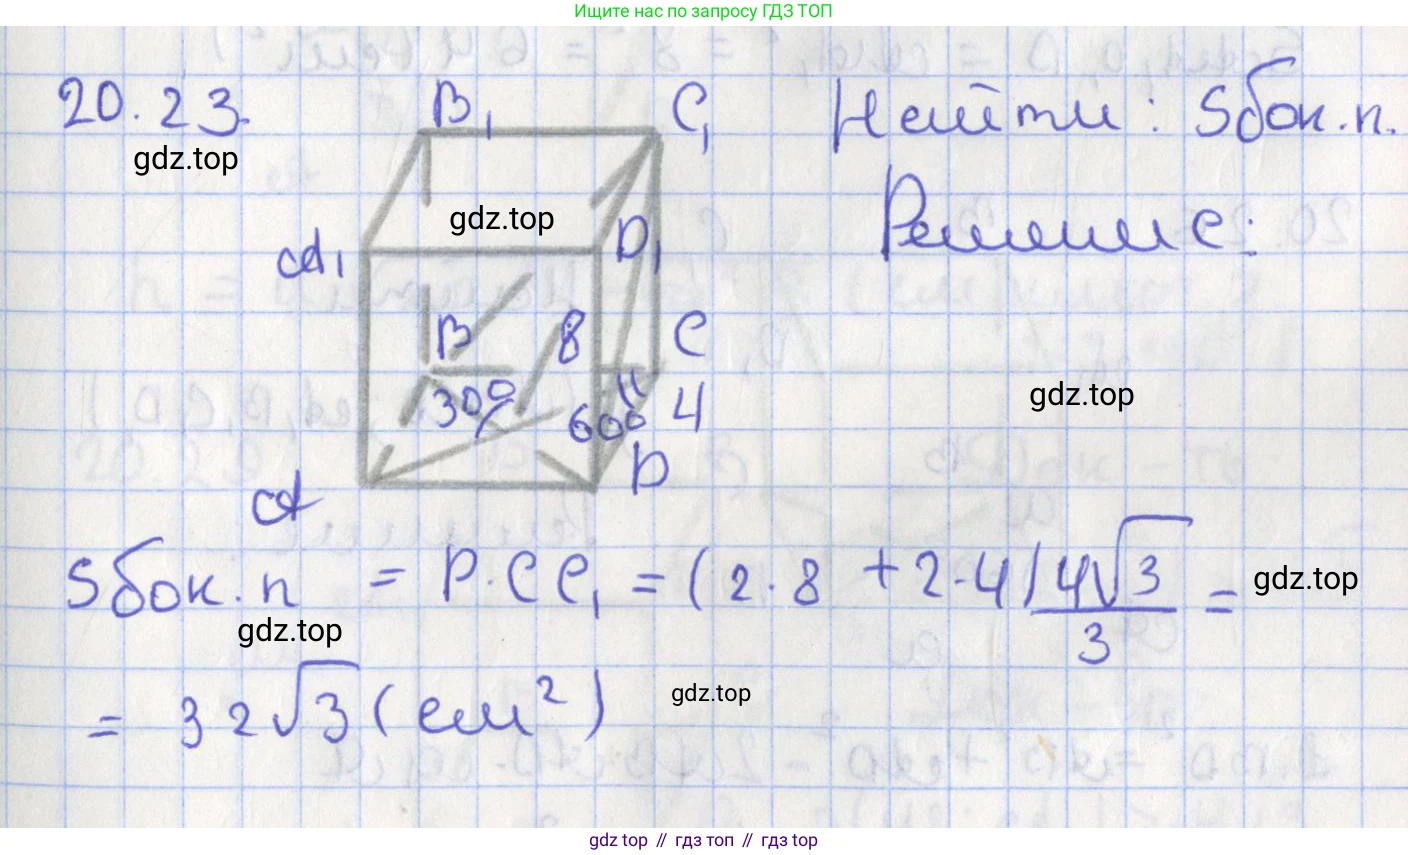 Ищите нас по запросу ГДЗ ТОП
20.23.
gdz.top
B₁
C₁
Найти: Sбок.п.
gdz.top
A₁
D₁
Решение:
B
8
C
30°
60°
4
gdz.top
D
A
Sбок.п = P·CC₁ = (2·8 + 2·4) 4√3/3 =
gdz.top
gdz.top
= 32√3 (см²)
gdz.top
gdz top // гдз топ // gdz top